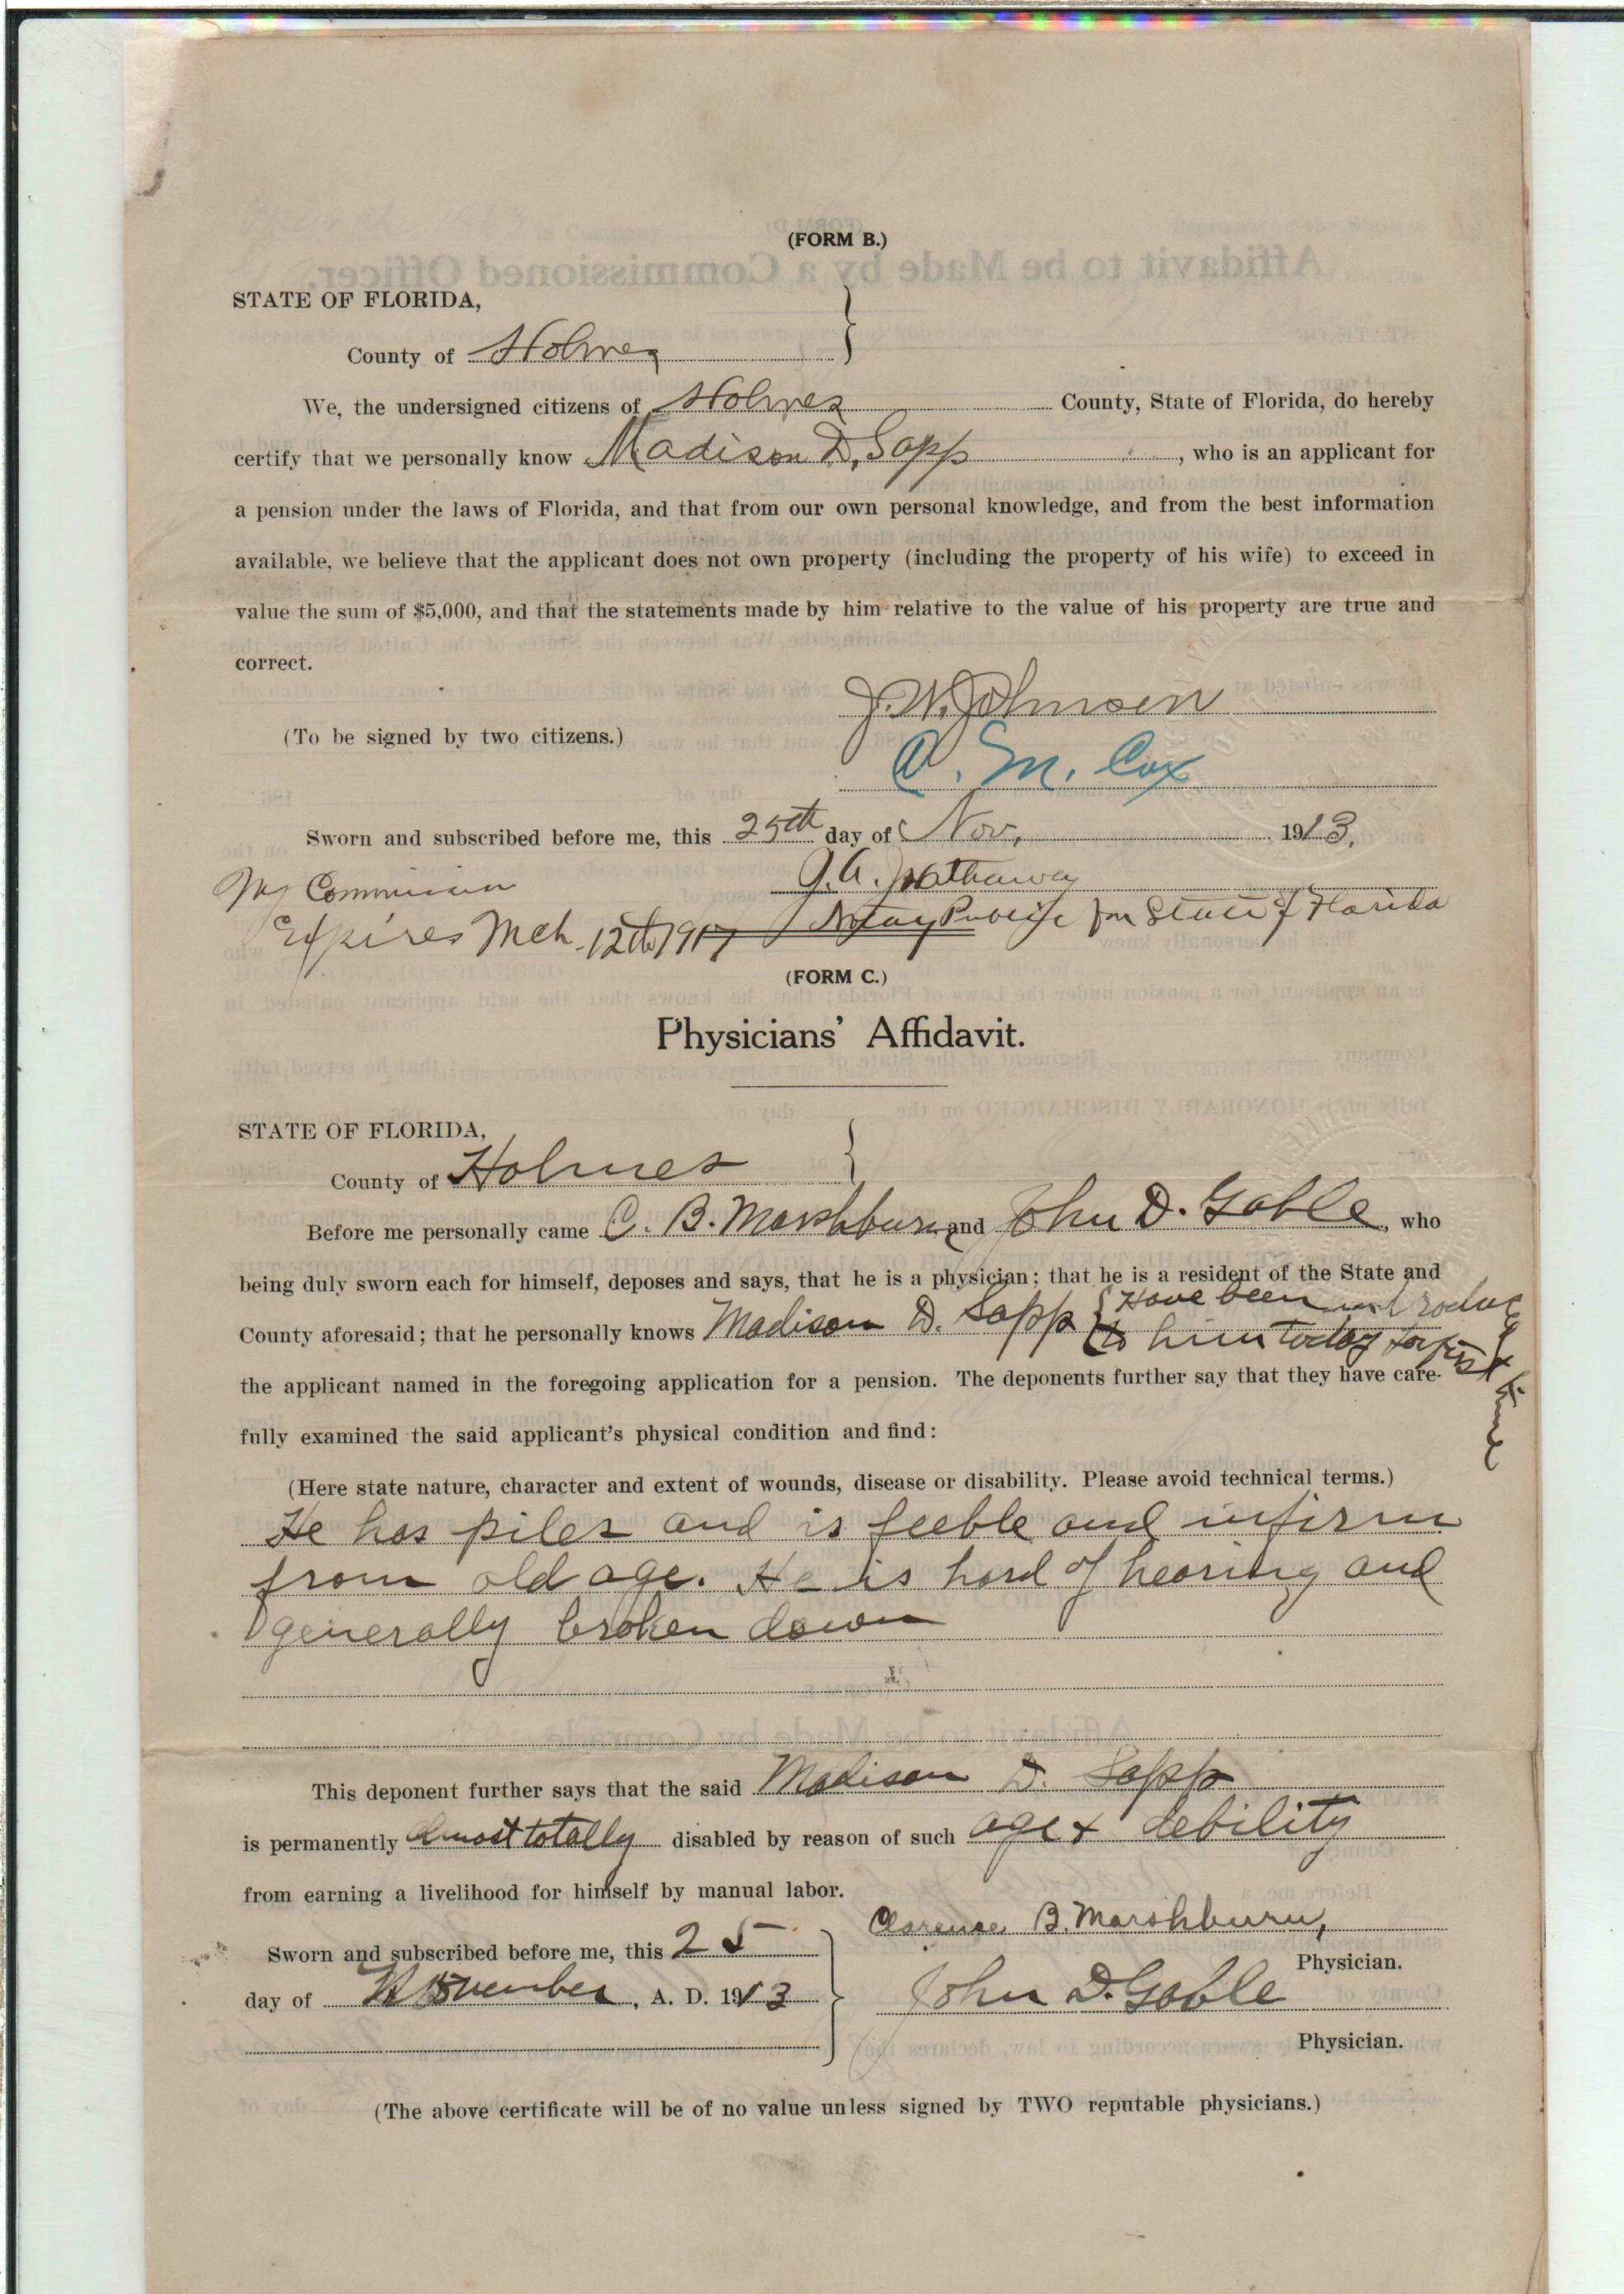 (FORM B.)
STATE OF FLORIDA,
County of Holmes
We, the undersigned citizens of Holmes County, State of Florida, do hereby
certify that we personally know Madison D. Sapp , who is an applicant for
a pension under the laws of Florida, and that from our own personal knowledge, and from the best information
available, we believe that the applicant does not own property (including the property of his wife) to exceed in
value the sum of $5,000, and that the statements made by him relative to the value of his property are true and
correct.
J. W. Johnson
(To be signed by two citizens.)
C. M. Cox
Sworn and subscribed before me, this 25th day of Nov, 1913.
My Commission J. A. Hathaway
Expires Mch 12th 1917 Notary Public for State of Florida
(FORM C.)
Physicians' Affidavit.
STATE OF FLORIDA,
County of Holmes
Before me personally came C. B. Marshburn and John D. Gable, who
being duly sworn each for himself, deposes and says, that he is a physician; that he is a resident of the State and
County aforesaid; that he personally knows Madison D. Sapp { Have been introduc
to him today for first time
the applicant named in the foregoing application for a pension. The deponents further say that they have care-
fully examined the said applicant's physical condition and find:
(Here state nature, character and extent of wounds, disease or disability. Please avoid technical terms.)
He has piles and is feeble and infirm
from old age. He is hard of hearing and
generally broken down
This deponent further says that the said Madison D. Sapp
is permanently almost totally disabled by reason of such age & debility
from earning a livelihood for himself by manual labor.
Clarence B. Marshburn,
Sworn and subscribed before me, this 25
Physician.
day of November, A. D. 1913
John D. Gable
Physician.
(The above certificate will be of no value unless signed by TWO reputable physicians.)